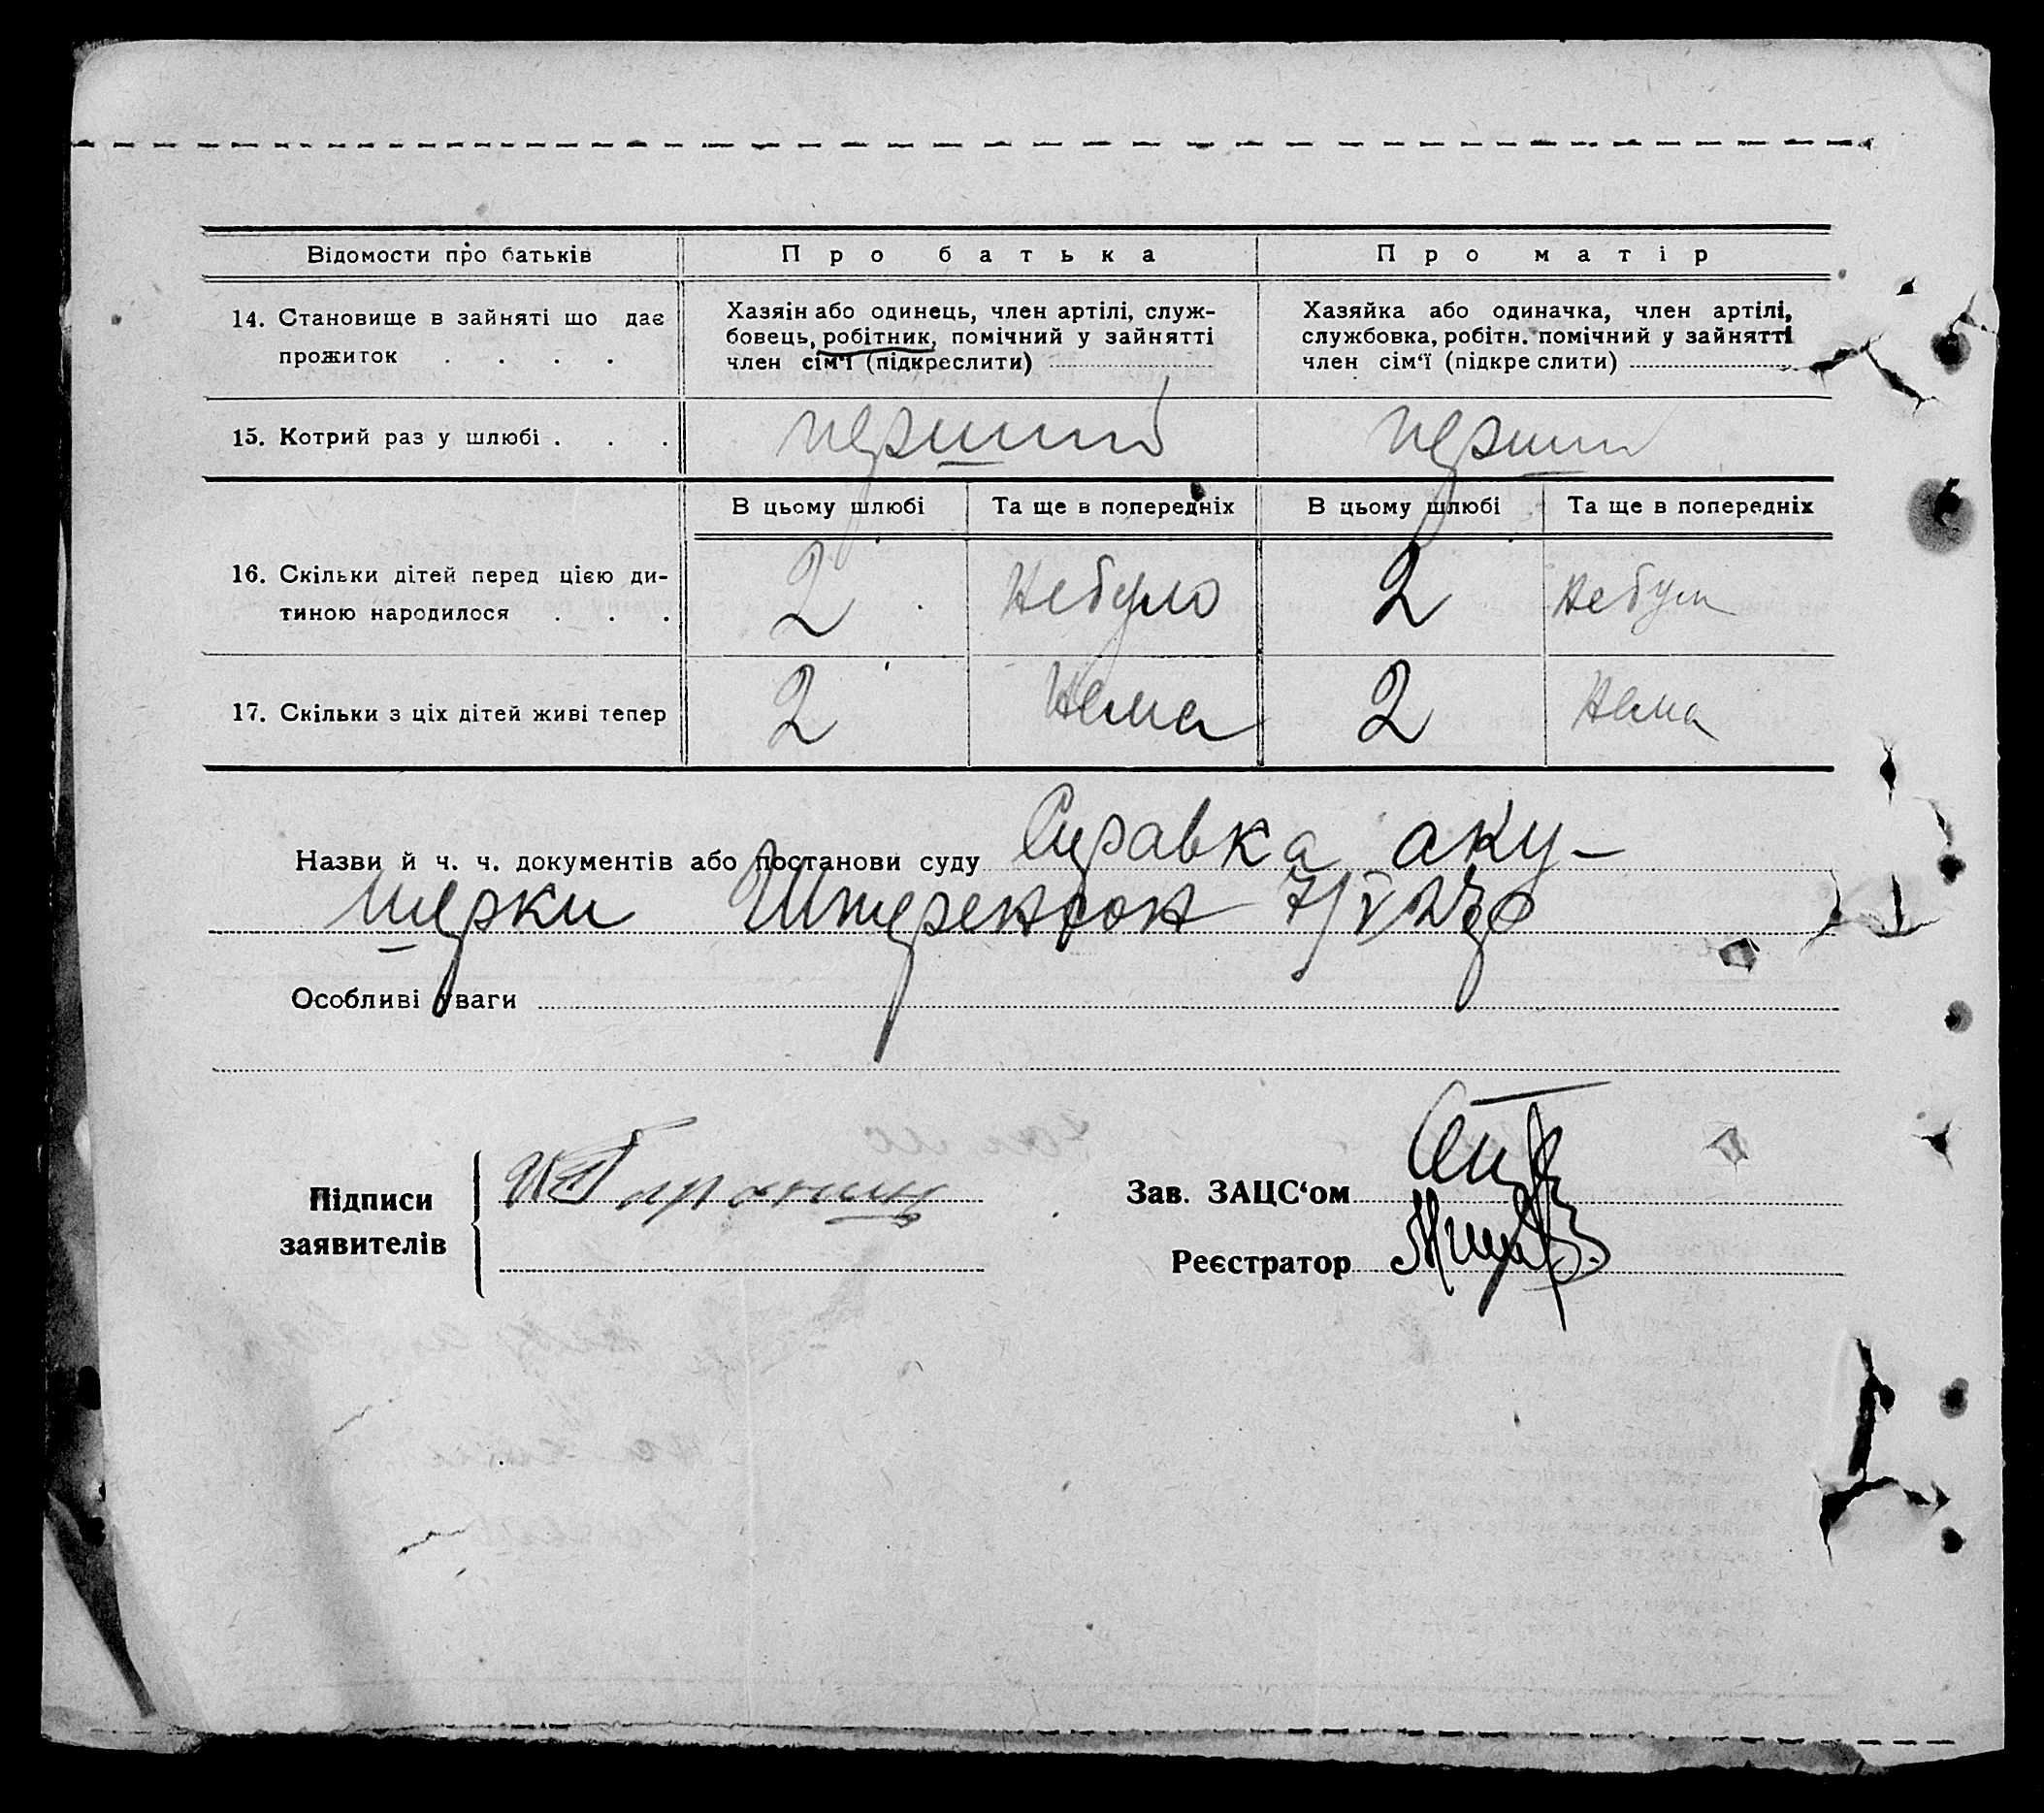 Відомости про батьків Про батька Про матір
14. Становище в зайняті що дає
прожиток . . . .
Хазяін або одинець, член артілі, служ-
бовець, робітник, помічний у зайнятті
член сім‘ї (підкреслити)
Хазяйка або одиначка, член артілі,
службовка, робітн. помічний у зайнятті
член сім‘ї (підкре слити)
15. Котрий раз у шлюбі . . . перший перший
В цьому шлюбі Та ще в попередніх В цьому шлюбі Та ще в попередніх
16. Скільки дітей перед цією ди-
тиною народилося . . .
2 Небуло 2 Небуло
17. Скільки з ціх дітей живі тепер 2 Нема 2 Нема
Назви й ч. ч. документів або постанови суду Справка аку-
шерки 7/V
Особливі уваги
Підписи
заявителів
Зав. ЗАЦС‘ом
Реєстратор